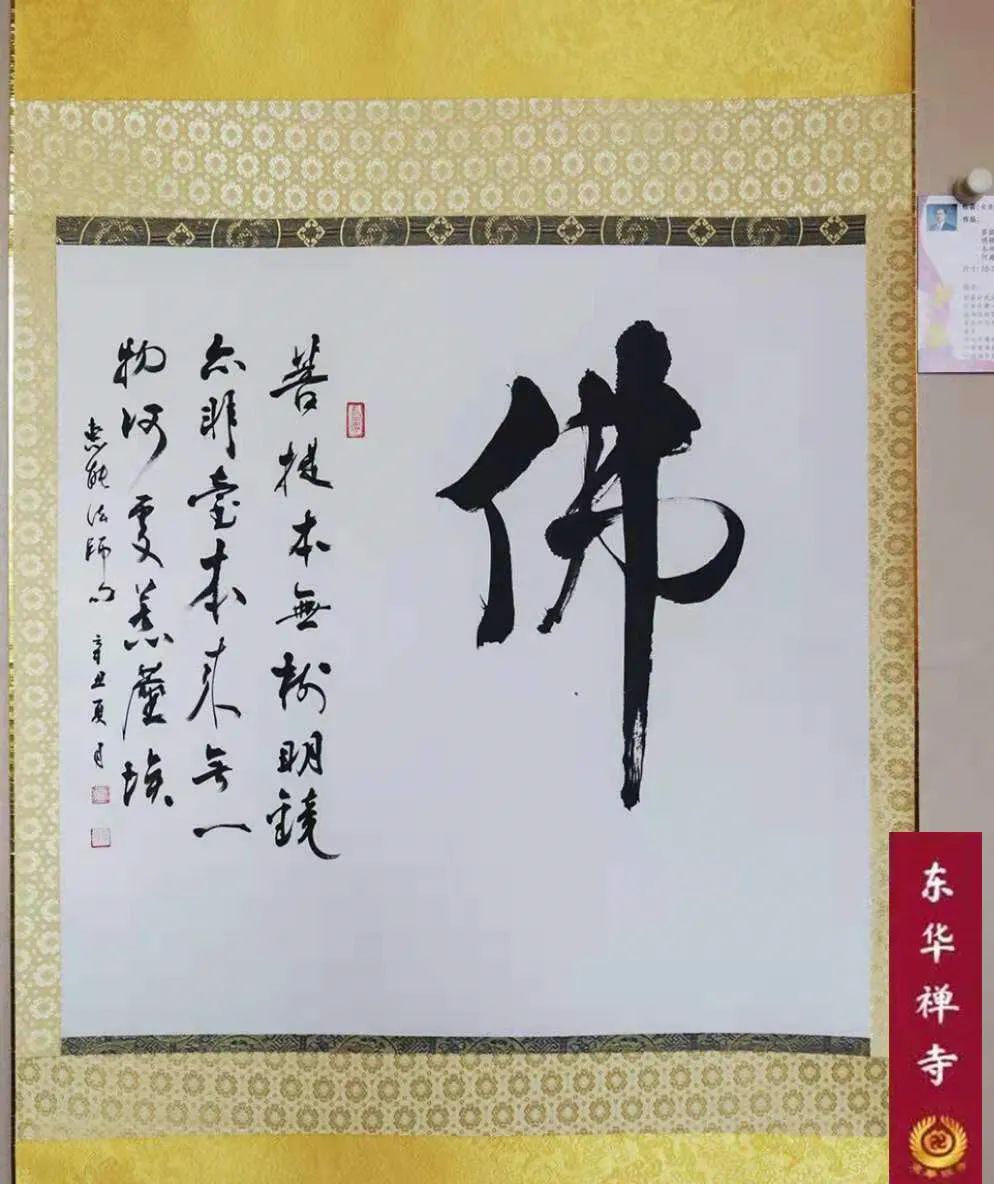 佛
菩提本無樹明鏡
亦非臺本來無一
物何處惹塵埃
惠能法師句
辛丑夏月
东华禅寺